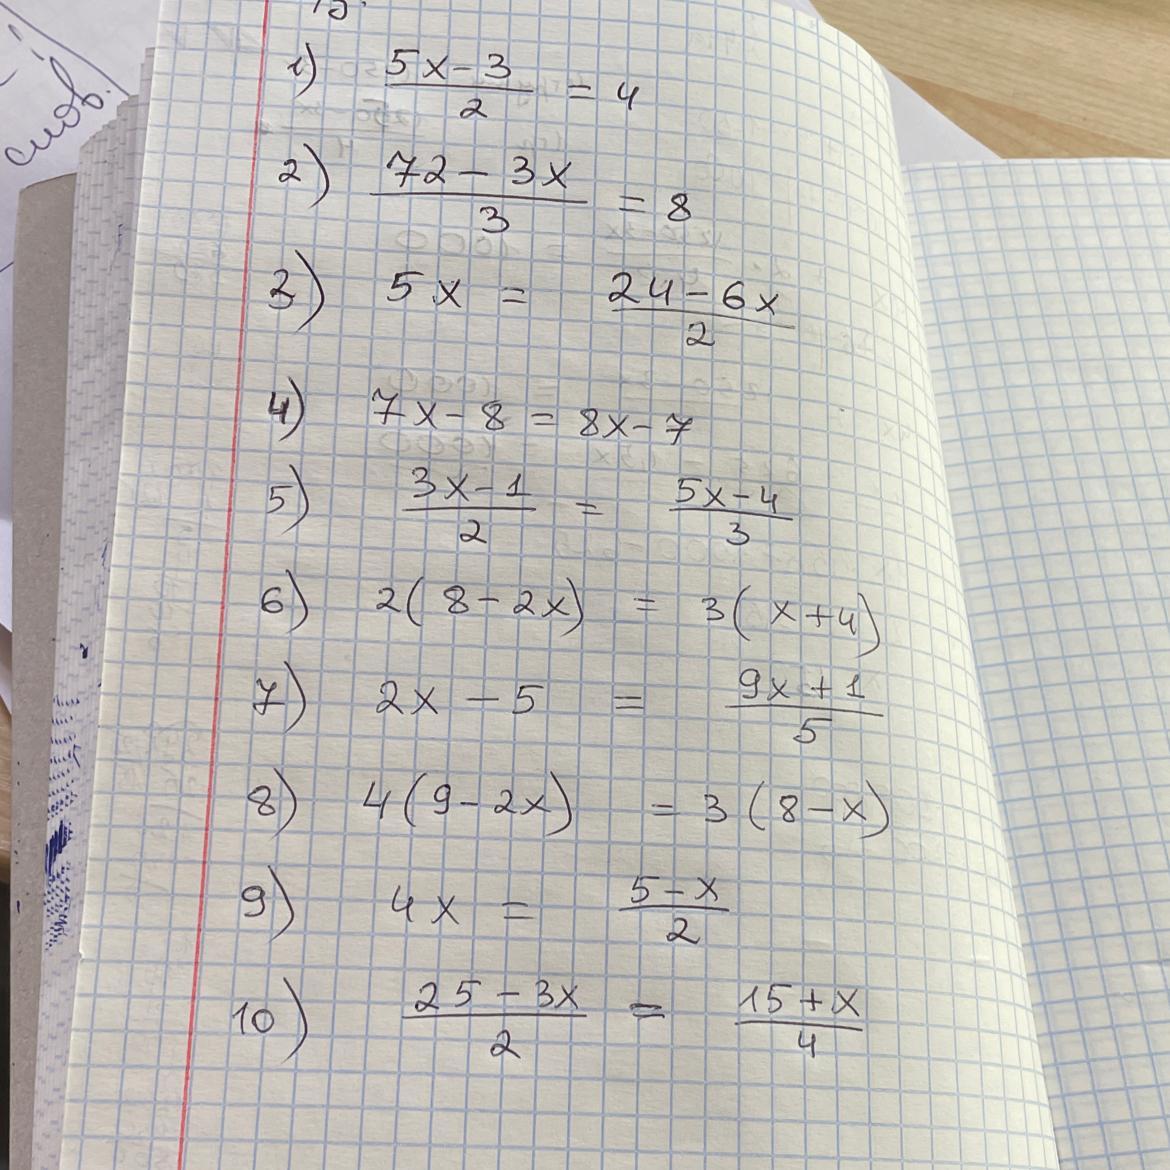 слов.
1) (5x-3)/2 = 4
2) (72-3x)/3 = 8
3) 5x = (24-6x)/2
4) 7x-8 = 8x-7
5) (3x-1)/2 = (5x-4)/3
6) 2(8-2x) = 3(x+4)
7) 2x-5 = (9x+1)/5
8) 4(9-2x) = 3(8-x)
9) 4x = (5-x)/2
10) (25-3x)/2 = (15+x)/4